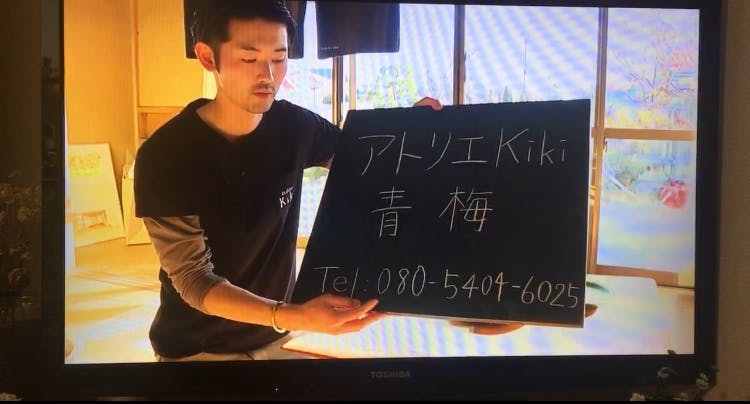 アトリエKiki
青梅
Tel:080-5404-6025
KiKi
TOSHIBA